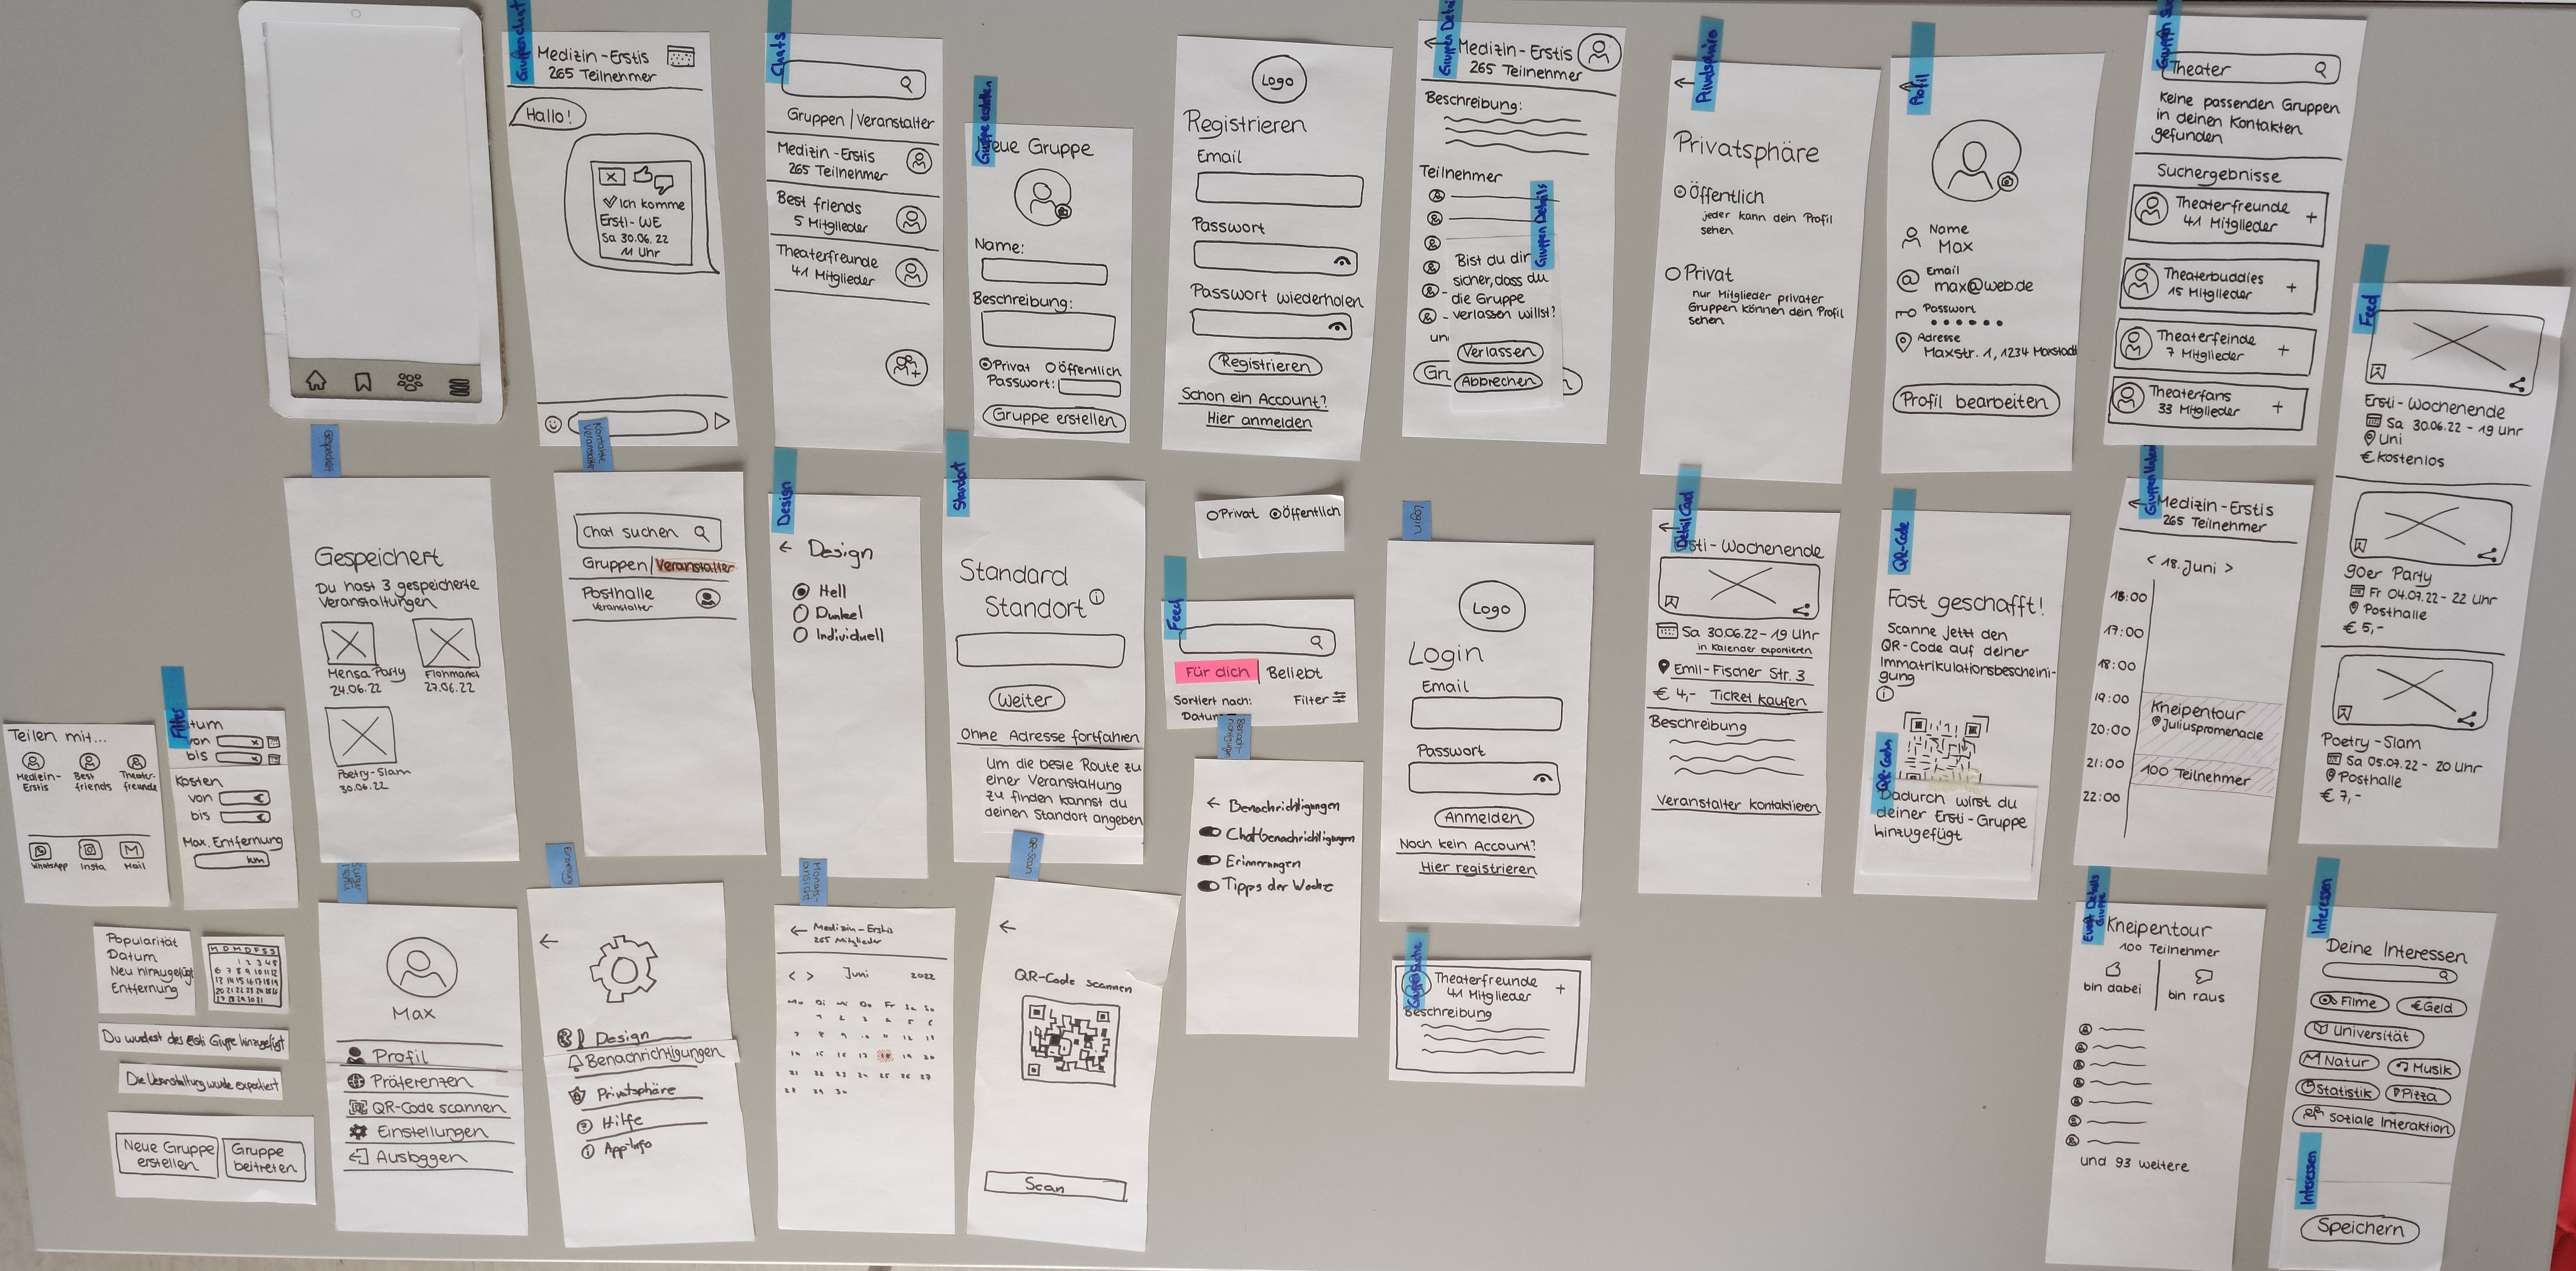 Gruppenchat
Medizin-Erstis
265 Teilnehmer
Hallo!
Ich komme
Ersti-WE
Sa 30.06.22
11 Uhr
Chats
Gruppen | Veranstalter
Medizin-Erstis
265 Teilnehmer
Best friends
5 Mitglieder
Theaterfreunde
41 Mitglieder
Gruppe erstellen
eue Gruppe
Name:
Beschreibung:
Privat Öffentlich
Passwort:
Gruppe erstellen
Logo
Registrieren
Email
Passwort
Passwort wiederholen
Registrieren
Schon ein Account?
Hier anmelden
Gruppen Details
Medizin-Erstis
265 Teilnehmer
Beschreibung:
Teilnehmer
Gruppen Details
Bist du dir
sicher, dass du
die Gruppe
verlassen willst?
un
Verlassen
Gru
Abbrechen
Privatsphäre
Privatsphäre
Öffentlich
jeder kann dein Profil
sehen
Privat
nur Mitglieder privater
Gruppen können dein Profil
sehen
Profil
Name
Max
Email
max@web.de
Passwort
Adresse
Maxstr. 1, 1234 Maxstadt
Profil bearbeiten
Theater
Keine passenden Gruppen
in deinen Kontakten
gefunden
Suchergebnisse
Theaterfreunde
41 Mitglieder +
Theaterbuddies
15 Mitglieder +
Theaterfeinde
7 Mitglieder +
Theaterfans
33 Mitglieder +
Feed
Ersti-Wochenende
Sa 30.06.22 - 19 Uhr
Uni
€ kostenlos
90er Party
Fr 04.07.22 - 22 Uhr
Posthalle
€ 5,-
Poetry-Slam
Sa 05.07.22 - 20 Uhr
Posthalle
€ 7,-
Gespeichert
Gespeichert
Du hast 3 gespeicherte
Veranstaltungen
Mensa Party
24.06.22
Flohmarkt
27.06.22
Poetry-Slam
30.06.22
Kontakte
Veranstalter
Chat suchen
Gruppen/Veranstalter
Posthalle
Veranstalter
Design
Design
Hell
Dunkel
Individuell
Standort
Standard
Standort
Weiter
Ohne Adresse fortfahren
Um die beste Route zu
einer Veranstaltung
zu finden kannst du
deinen Standort angeben
Privat Öffentlich
Feed
Für dich Beliebt
Sortiert nach:
Datum
Filter
Login
Logo
Login
Email
Passwort
Anmelden
Noch kein Account?
Hier registrieren
Detail Card
sti-Wochenende
Sa 30.06.22 - 19 Uhr
in Kalender exportieren
Emil-Fischer Str. 3
€ 4,- Ticket kaufen
Beschreibung
Veranstalter kontaktieren
QR-Code
Fast geschafft!
Scanne jetzt den
QR-Code auf deiner
Immatrikulationsbescheini-
gung
Dadurch wirst du
deiner Ersti-Gruppe
hinzugefügt
Medizin-Erstis
265 Teilnehmer
< 18. Juni >
17:00
18:00
19:00
20:00
21:00
22:00
Kneipentour
Juliuspromenade
100 Teilnehmer
Teilen mit...
Medizin-
Erstis
Best
friends
Theater-
freunde
WhatsApp
Insta
Mail
Filter
tum
von
bis
Kosten
von €
bis €
Max. Entfernung
km
Popularität
Datum
Neu hinzugefügt
Entfernung
M D M D F S S
1 2 3 4 5
6 7 8 9 10 11 12
13 14 15 16 17 18 19
Du wurdest der Ersti Gruppe hinzugefügt
Die Veranstaltung wurde exportiert
Neue Gruppe
erstellen
Gruppe
beitreten
Max
Profil
Präferenzen
QR-Code scannen
Einstellungen
Ausloggen
Design
Benachrichtigungen
Privatsphäre
Hilfe
App-Info
Monats-
ansicht
Medizin-Erstis
265 Mitglieder
< > Juni 2022
Mo Di Mi Do Fr Sa So
1 2 3 4 5 6
7 8 9 10 11 12 13
14 15 16 17 18 19 20
21 22 23 24 25 26 27
28 29 30
QR-Scan
QR-Code scannen
Scan
Benach-
richtigungen
Benachrichtigungen
Chatbenachrichtigungen
Erinnerungen
Tipps der Woche
Theaterfreunde
41 Mitglieder +
Beschreibung
Event Details
Gruppe
Kneipentour
100 Teilnehmer
bin dabei
bin raus
und 93 weitere
Interessen
Deine Interessen
Filme
€ Geld
Universität
Natur
Musik
Statistik
Pizza
soziale Interaktion
Interessen
Speichern